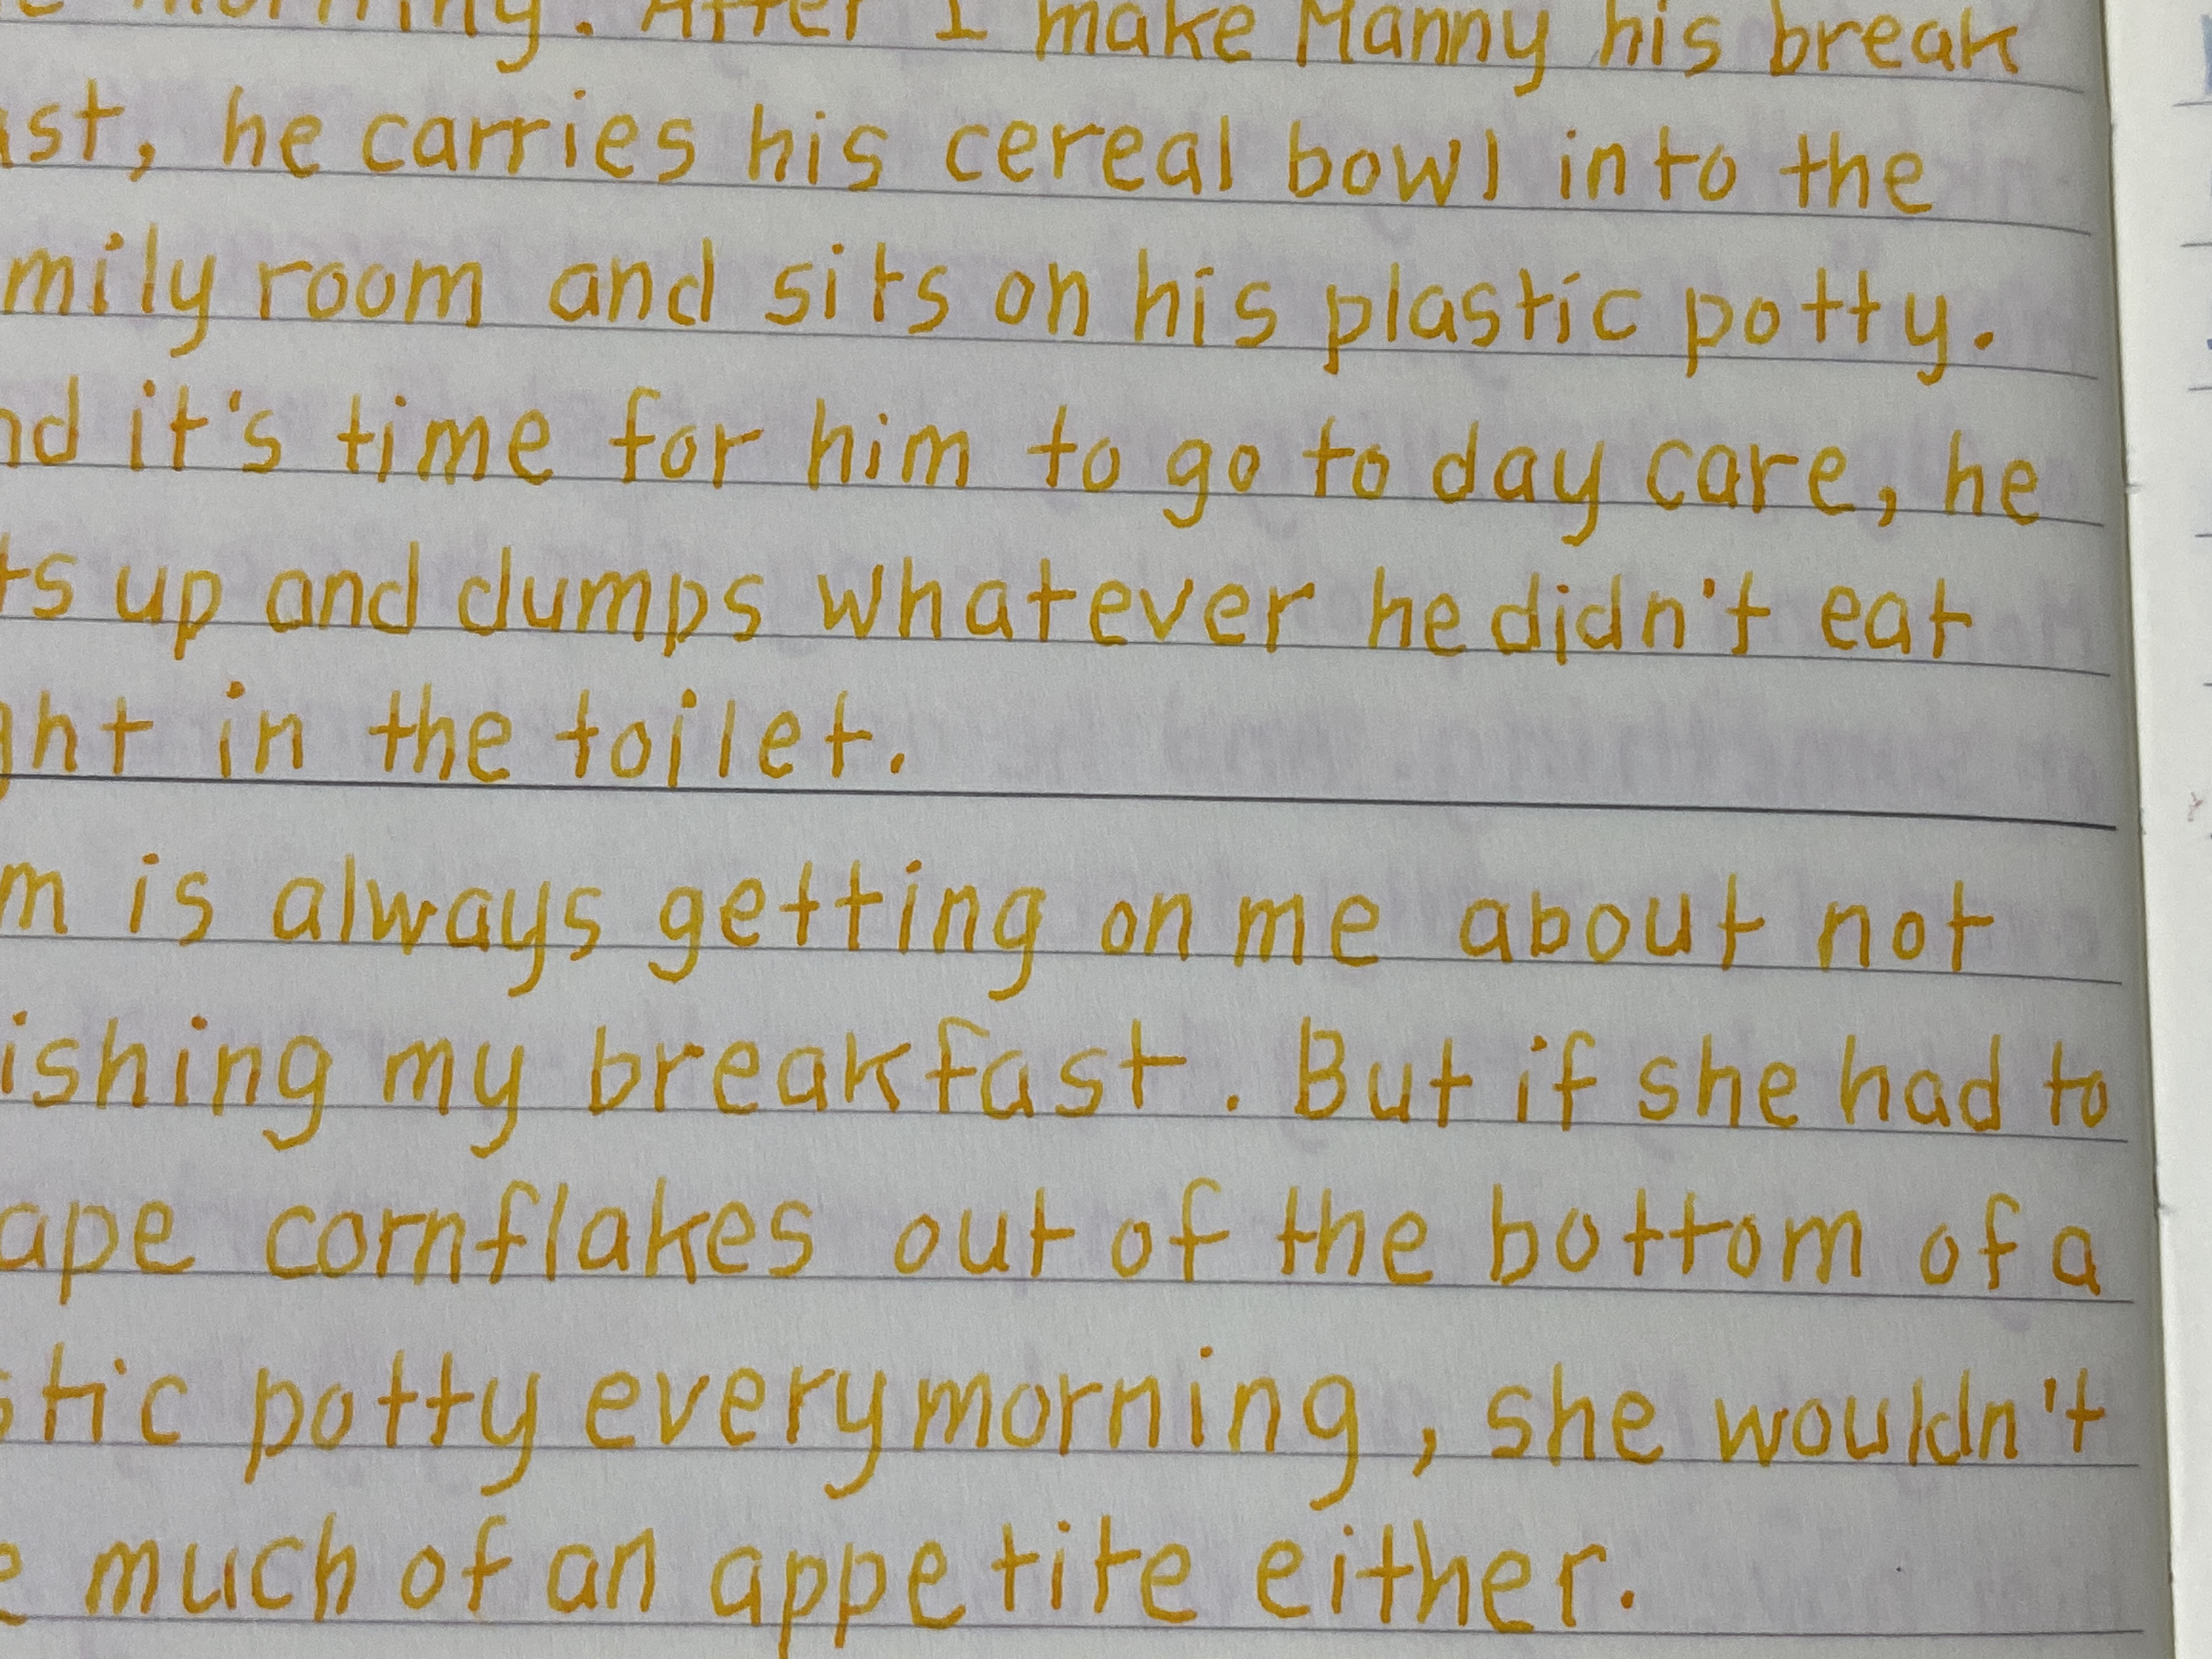 morning. After I make Manny his break
ast, he carries his cereal bowl into the
mily room and sits on his plastic potty.
nd it's time for him to go to day care, he
ts up and dumps whatever he didn't eat
ght in the toilet.
m is always getting on me about not
ishing my breakfast. But if she had to
ape cornflakes out of the bottom of a
stic potty everymorning, she wouldn't
e much of an appetite either.